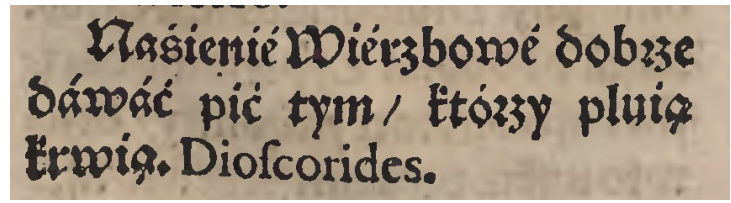 Naśienié Wiérzbowé dobrze
dáwáć pić tym/ którzy pluią
krwią. Dioſcorides.